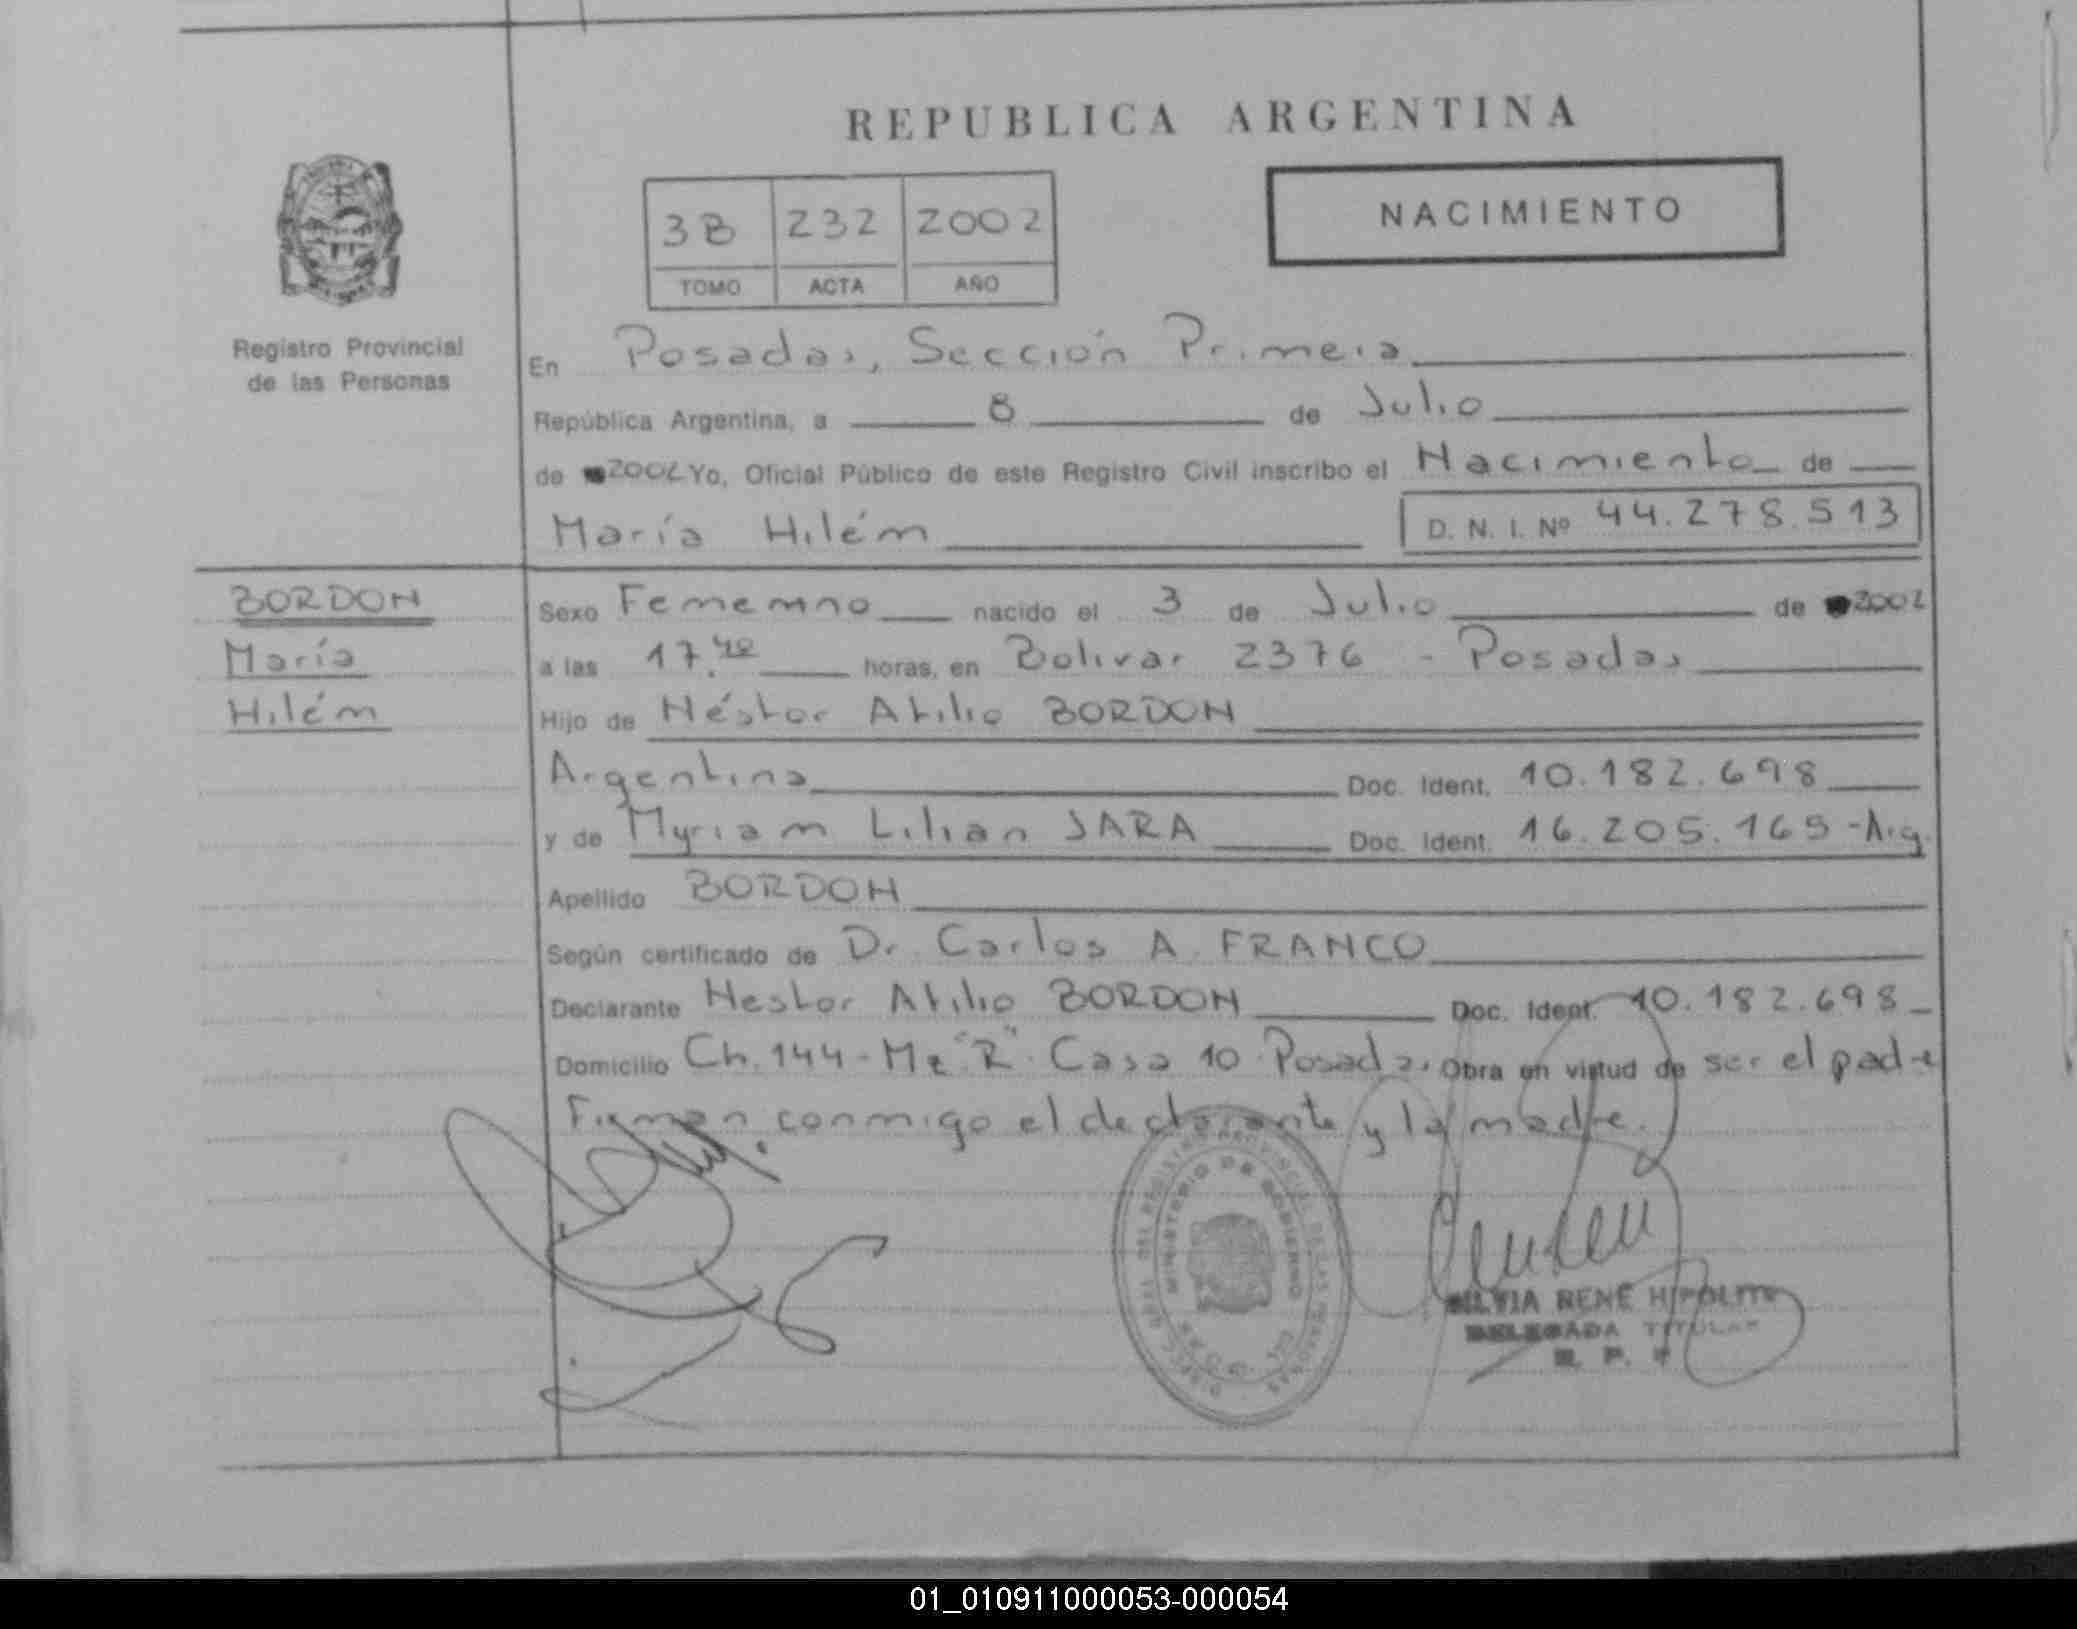 REPUBLICA ARGENTINA
NACIMIENTO
3B 232 2002
TOMO ACTA AÑO
Registro Provincial
de las Personas
En Posadas, Sección Primera
República Argentina, a 8 de Julio
de 2002 Yo, Oficial Público de este Registro Civil inscribo el Nacimiento de
María Hilém D. N. I. Nº 44.278.513
BORDON
María
Hilém
Sexo Femenino nacido el 3 de Julio de 2002
a las 17.40 horas, en Bolivar 2376 - Posadas
Hijo de Néstor Atilio BORDON
Argentina Doc. Ident. 10.182.698
y de Myriam Lilian JARA Doc. Ident. 16.205.165 - Arg.
Apellido BORDON
Según certificado de Dr. Carlos A. FRANCO
Declarante Nestor Atilio BORDON Doc. Ident. 10.182.698
Domicilio Ch. 144 - Mz "R" Casa 10 Posadas Obra en virtud de ser el padre
Firman conmigo el declarante y la madre.
MINISTERIO DE GOBIERNO
SILVIA RENÉ HIPOLITO
DELEGADA TITULAR
R. P. P
01_010911000053-000054